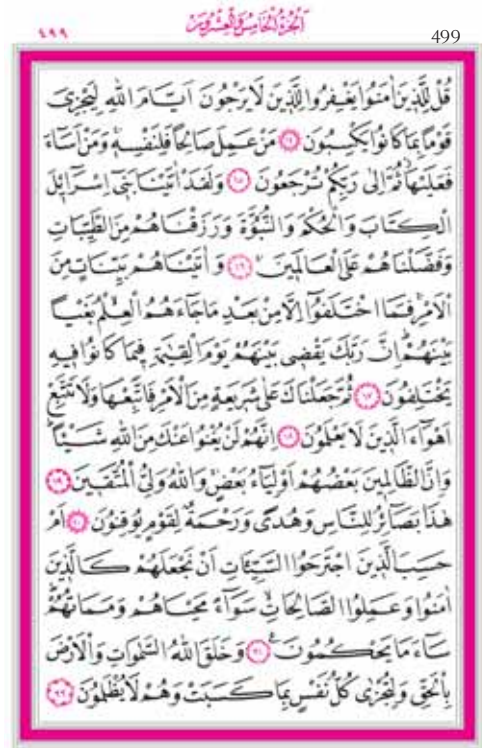 ٤٩٩ اَلْجُزْءُ الْخَامِسُ وَالْعِشْرُونَ 499
قُلْ لِلَّذ۪ينَ اٰمَنُوا يَغْفِرُوا لِلَّذ۪ينَ لَا يَرْجُونَ اَيَّامَ اللّٰهِ لِيَجْزِيَ
قَوْمًا بِمَا كَانُوا يَكْسِبُونَ ﴿١٤﴾ مَنْ عَمِلَ صَالِحًا فَلِنَفْسِه۪ۚ وَمَنْ اَسَٓاءَ
فَعَلَيْهَاۘ ثُمَّ اِلٰى رَبِّكُمْ تُرْجَعُونَ ﴿١٥﴾ وَلَقَدْ اٰتَيْنَا بَن۪ٓي اِسْرَٓائ۪لَ
الْكِتَابَ وَالْحُكْمَ وَالنُّبُوَّةَ وَرَزَقْنَاهُمْ مِنَ الطَّيِّبَاتِ
وَفَضَّلْنَاهُمْ عَلَى الْعَالَم۪ينَۚ ﴿١٦﴾ وَاٰتَيْنَاهُمْ بَيِّنَاتٍ مِنَ
الْاَمْرِۚ فَمَا اخْتَلَفُٓوا اِلَّا مِنْ بَعْدِ مَا جَٓاءَهُمُ الْعِلْمُ بَغْيًا
بَيْنَهُمْۜ اِنَّ رَبَّكَ يَقْض۪ي بَيْنَهُمْ يَوْمَ الْقِيٰمَةِ ف۪يمَا كَانُوا ف۪يهِ
يَخْتَلِفُونَ ﴿١٧﴾ ثُمَّ جَعَلْنَاكَ عَلٰى شَر۪يعَةٍ مِنَ الْاَمْرِ فَاتَّبِعْهَا وَلَا تَتَّبِعْ
اَهْوَٓاءَ الَّذ۪ينَ لَا يَعْلَمُونَ ﴿١٨﴾ اِنَّهُمْ لَنْ يُغْنُوا عَنْكَ مِنَ اللّٰهِ شَيْـًٔاۜ
وَاِنَّ الظَّالِم۪ينَ بَعْضُهُمْ اَوْلِيَٓاءُ بَعْضٍۚ وَاللّٰهُ وَلِيُّ الْمُتَّق۪ينَ ﴿١٩﴾
هٰذَا بَصَٓائِرُ لِلنَّاسِ وَهُدًى وَرَحْمَةٌ لِقَوْمٍ يُوقِنُونَ ﴿٢٠﴾ اَمْ
حَسِبَ الَّذ۪ينَ اجْتَرَحُوا السَّيِّـَٔاتِ اَنْ نَجْعَلَهُمْ كَالَّذ۪ينَ
اٰمَنُوا وَعَمِلُوا الصَّالِحَاتِۙ سَوَٓاءً مَحْيَاهُمْ وَمَمَاتُهُمْۜ
سَٓاءَ مَا يَحْكُمُونَ۟ ﴿٢١﴾ وَخَلَقَ اللّٰهُ السَّمٰوَاتِ وَالْاَرْضَ
بِالْحَقِّ وَلِتُجْزٰى كُلُّ نَفْسٍ بِمَا كَسَبَتْ وَهُمْ لَا يُظْلَمُونَ ﴿٢٢﴾